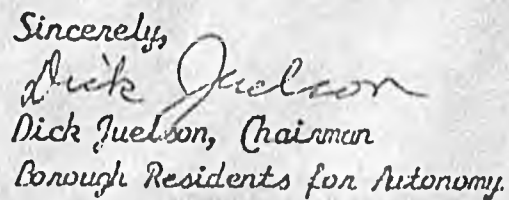 Sincerely,
Dick Juelson
Dick Juelson, Chairman
Borough Residents for Autonomy.